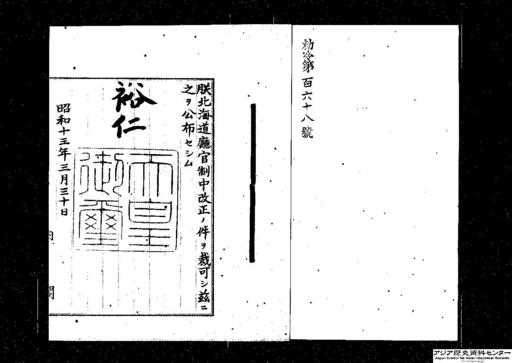 勅令第百六十八號
朕北海道廳官制中改正ノ件ヲ裁可シ茲ニ
之ヲ公布セシム
裕仁
天皇
御璽
昭和十三年三月三十日
内閣
アジア歴史資料センター
Japan Center for Asian Historical Records